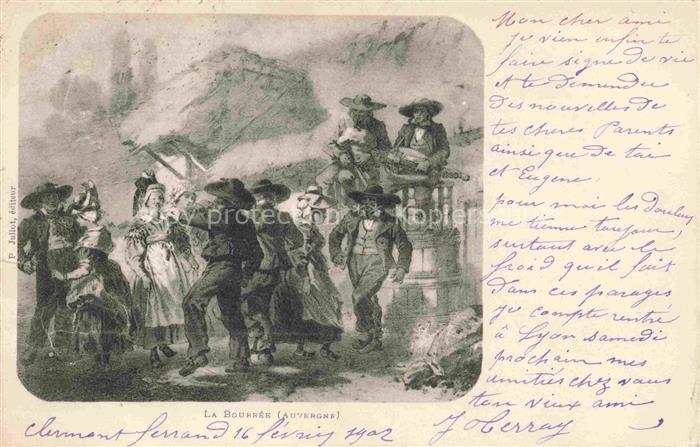 Mon cher ami
je vien enfin te
faire signe de vie
et te demender
des nouvelles de
tes cheres Parents
ainsi que de tai
et Eugene.
pour moi les douleurs
me tienne toujour,
surtout avec le
froid qu'il fait
dans ces parages
je compte rentre
à Lyon samedi
prochain mes
amitiés chez vous
ton vieux ami
P. Juliot, éditeur
LA BOURRÉE (AUVERGNE)
clermont ferrand 16 février 1902